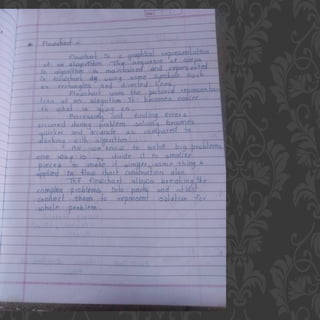 * Flowchart :-
Flowchart is a graphical representation
of an algorithm. The sequence of steps
in algorithm is maintained and represented
in flowchart by using some symbols such
as rectangles and directed lines.
Flowchart uses the pictorial representa-
tion of an algorithm. It becomes easier
to what is going on.
Processing and finding errors
occurred during problem solving becomes
quicker and accurate as compared to
working with algorithm.
As we know to solve big problems
one way is to divide it to smaller
pieces to make it simpler, same thing is
applied to flow chart construction also.
The flowchart allows breaking the
complex problems into parts and atlast
connect them to represent solution for
whole problem.